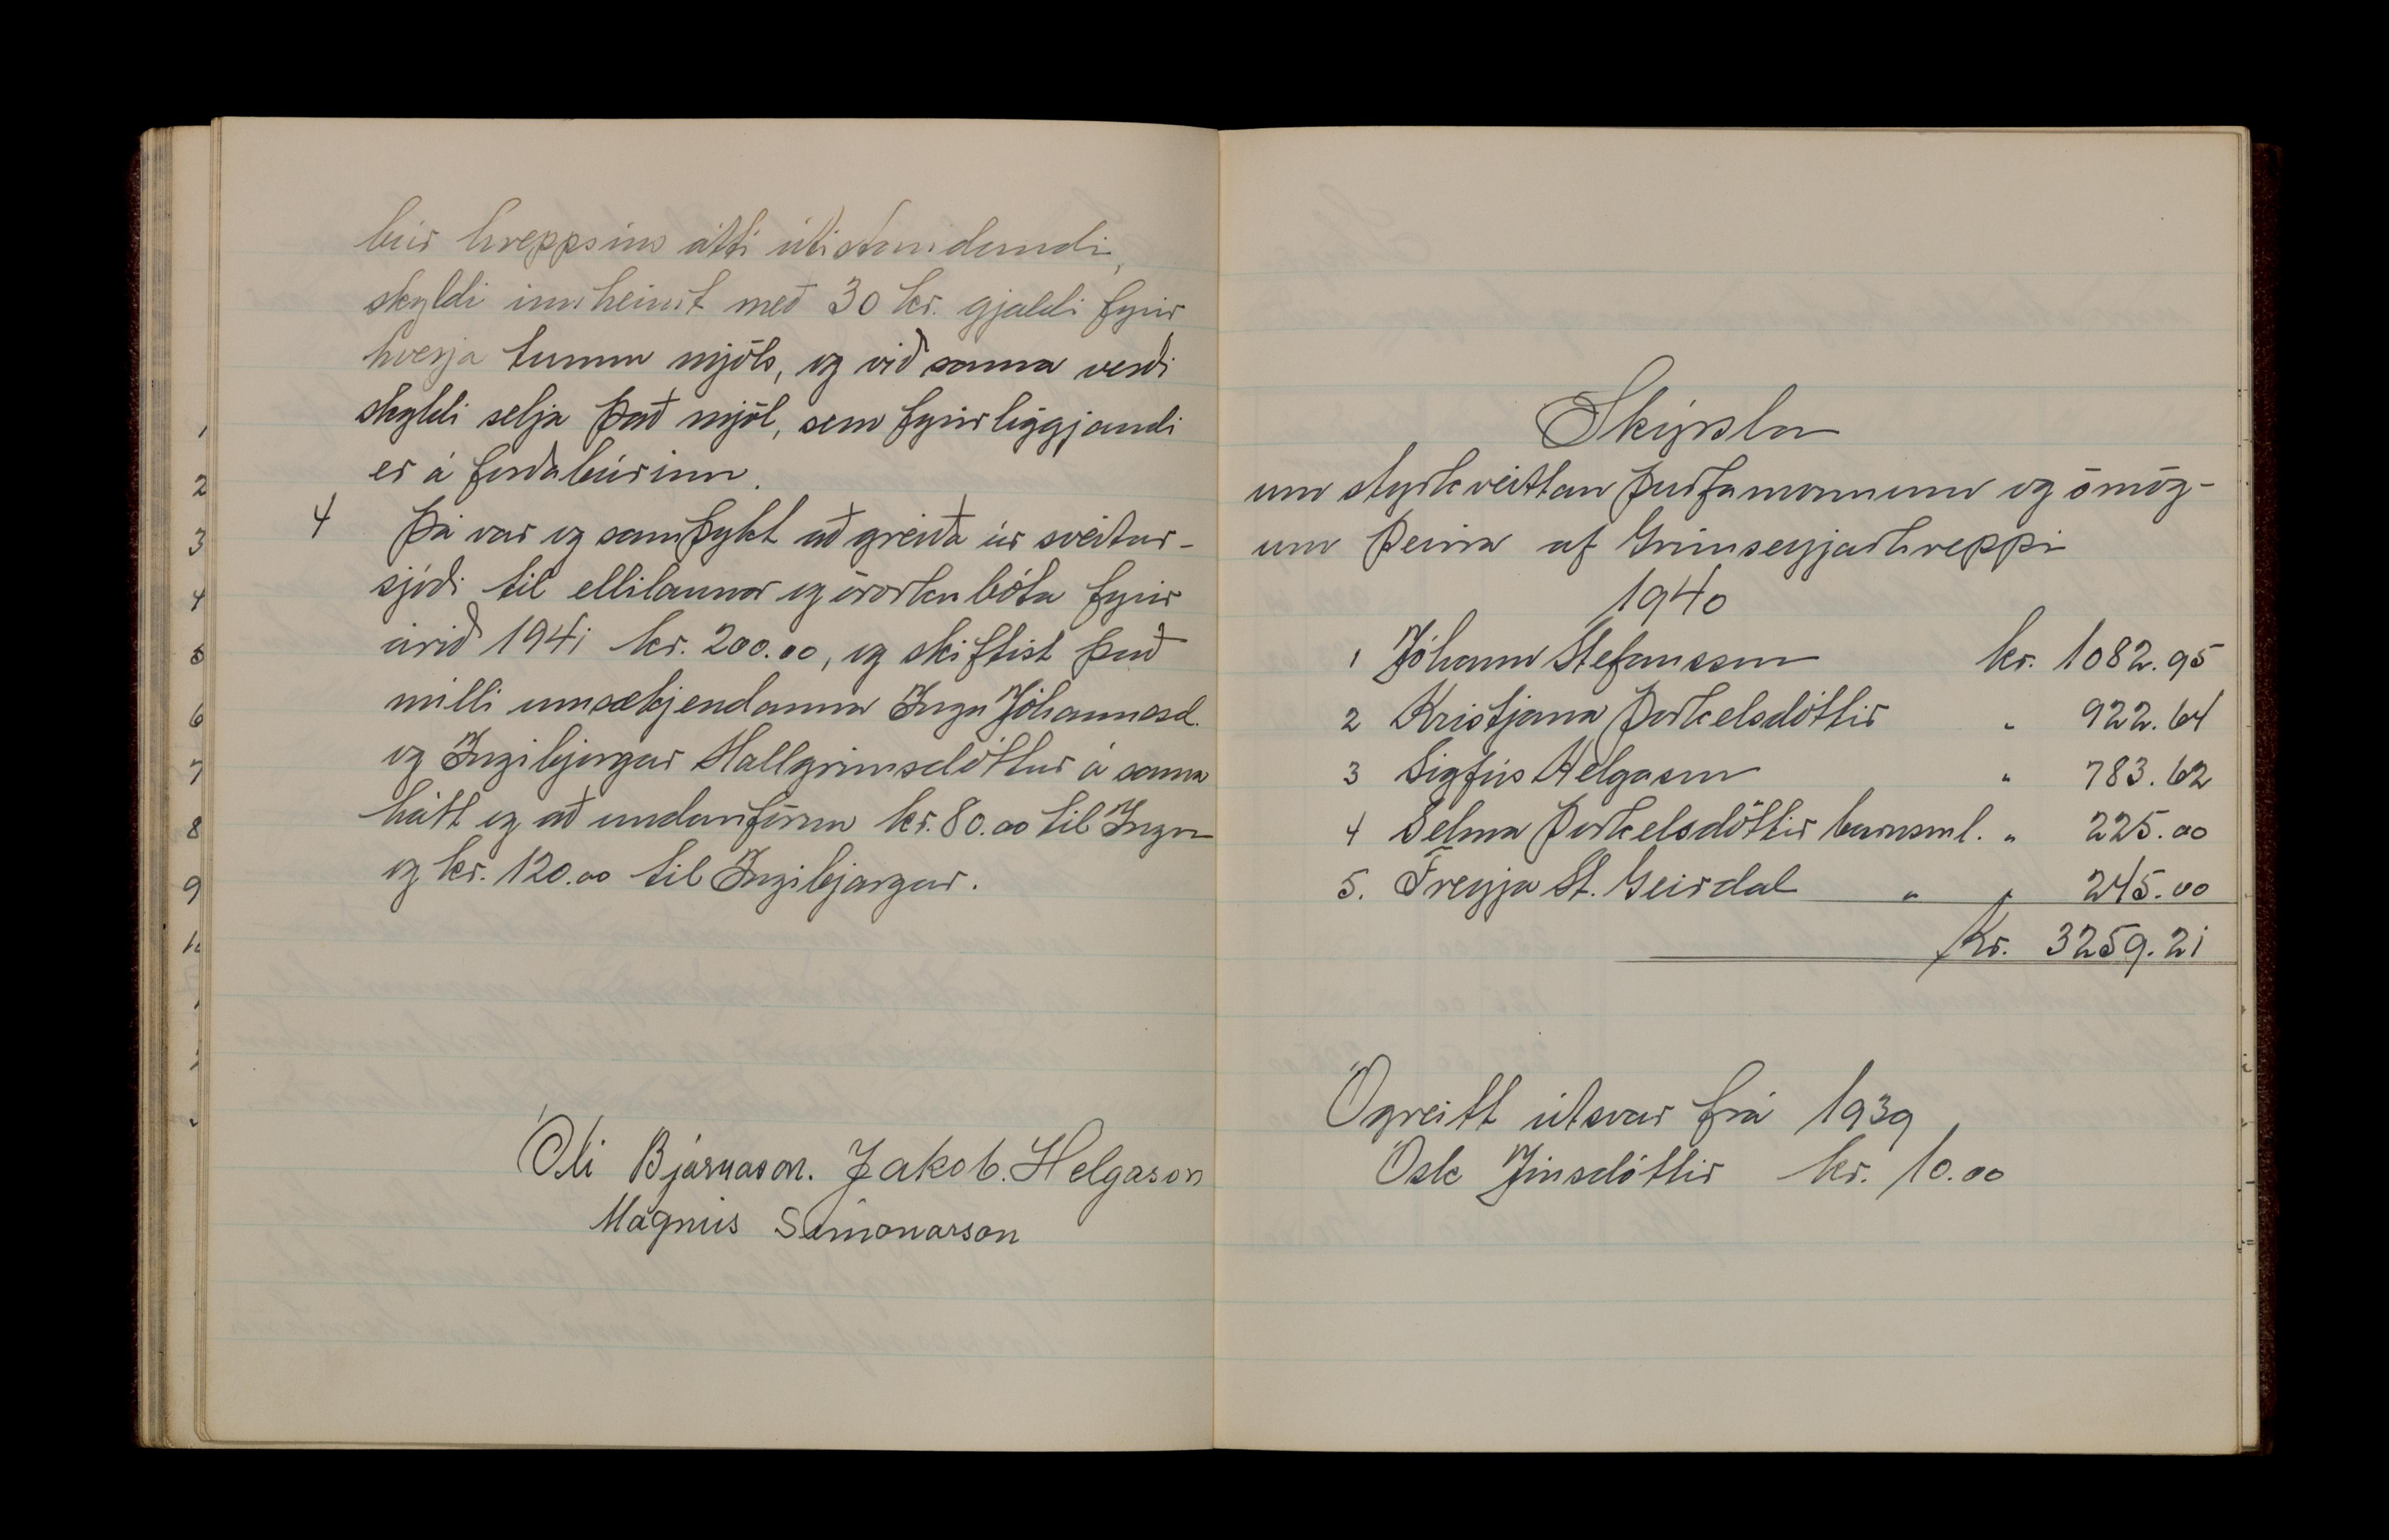 búr hreppsins átti útistandandi,
skyldi innheimt með 30 kr. gjaldi fyrir
hverja tunnu mjöls, og við sama verði
skyldi selja það mjöl, sem fyrirliggjandi
er á forðabúrinu.
4 Þá var og samþykt að greiða úr sveitar-
sjóði til ellilauna og örorkubóta fyrir
árið 1941 kr. 200.00, og skiftist það
milli umsækjendanna Ingu Jóhannesd.
og Ingibjargar Hallgrímsdóttur á sama
hátt og að undanförnu kr. 80.00 til Ingu
og kr. 120.00 til Ingibjargar.
Óli Bjarnason. Jakob. Helgason
Magnús Símonarson
1
2
3
4
5
6
7
8
9
10
Skýrsla
um styrkveittan þurfamönnum og ómög-
um þeirra af Grímseyjarhreppi
1940
1 Jóhann Stefansson kr. 1082.95
2 Kristjana Þorkelsdóttir " 922.64
3 Sigfús Helgason " 783.62
4 Selma Þorkelsdóttir barnsml. " 225.00
5. Freyja St. Geirdal " " 245.00
Kr. 3259.21
Ógreitt útsvar frá 1939
Ósk Jónsdóttir kr. 10.00